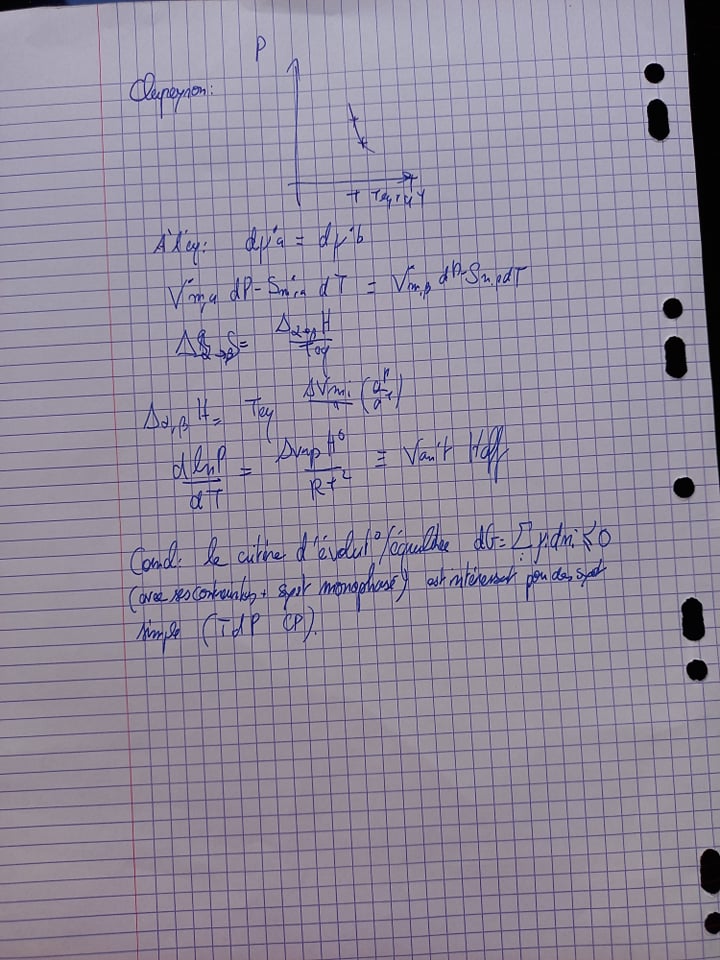 P
Clapeyron:
T Teq,α,β T
À l'éq: dμ*a = dμ*b
V*m,α dP - Sm*,α dT = Vm,β dP - Sm,β dT
Δα→βS = Δα→βH / Teq
Δα,β H = Teq ΔVm (dP/dT)
d lnP / dT = Δvap H° / RT² ≡ Van't Hoff
Concl: le critère d'évolut°/équilibre dG = Σ μi dni ≤ 0
(avec ses contraintes + syst monophasé) est intéressant pour des syst
simple (TdP CP).